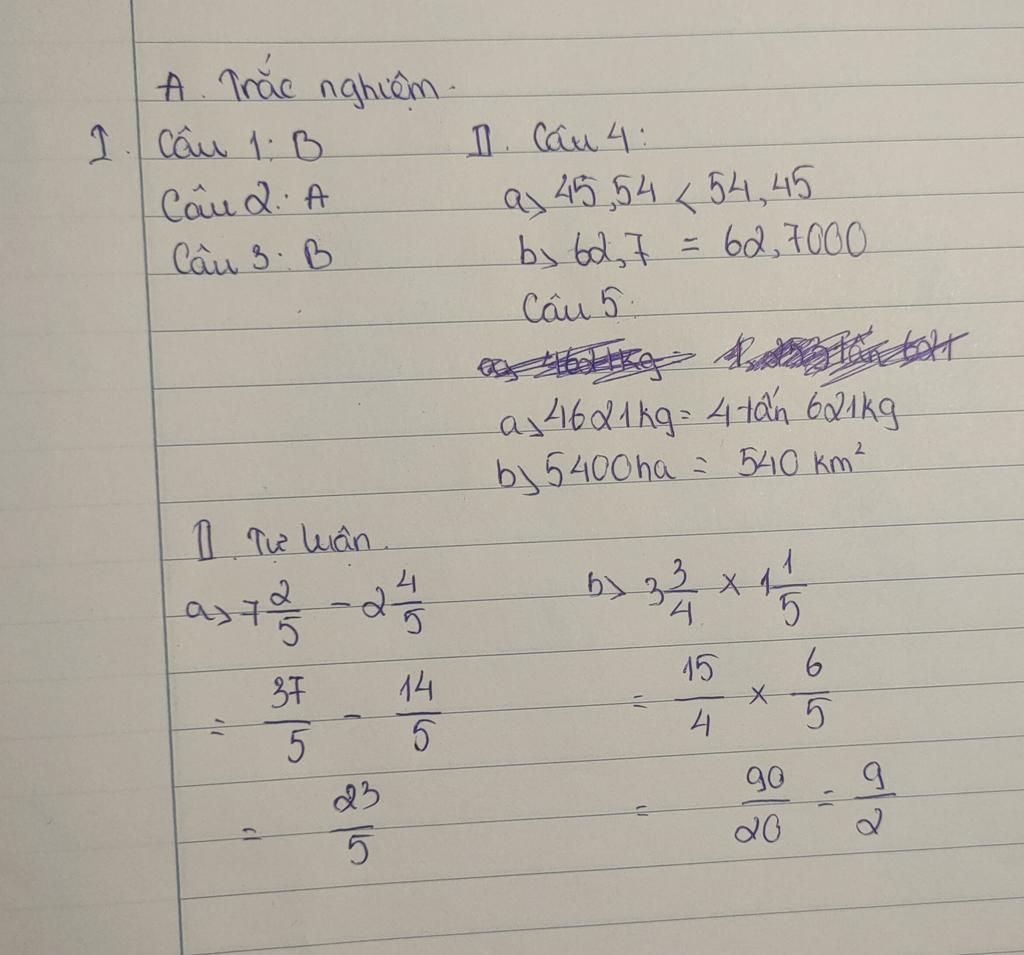 A. Trắc nghiệm.
I. Câu 1: B
Câu 2: A
Câu 3: B
II. Câu 4:
a> 45,54 < 54,45
b> 62,7 = 62,7000
Câu 5:
a> 4621kg = 4 tấn 621kg
b> 5400ha = 540 km²
II. Tự luận.
a> 7 2/5 - 2 4/5
= 37/5 - 14/5
= 23/5
b> 3 3/4 × 1 1/5
= 15/4 × 6/5
= 90/20 = 9/2